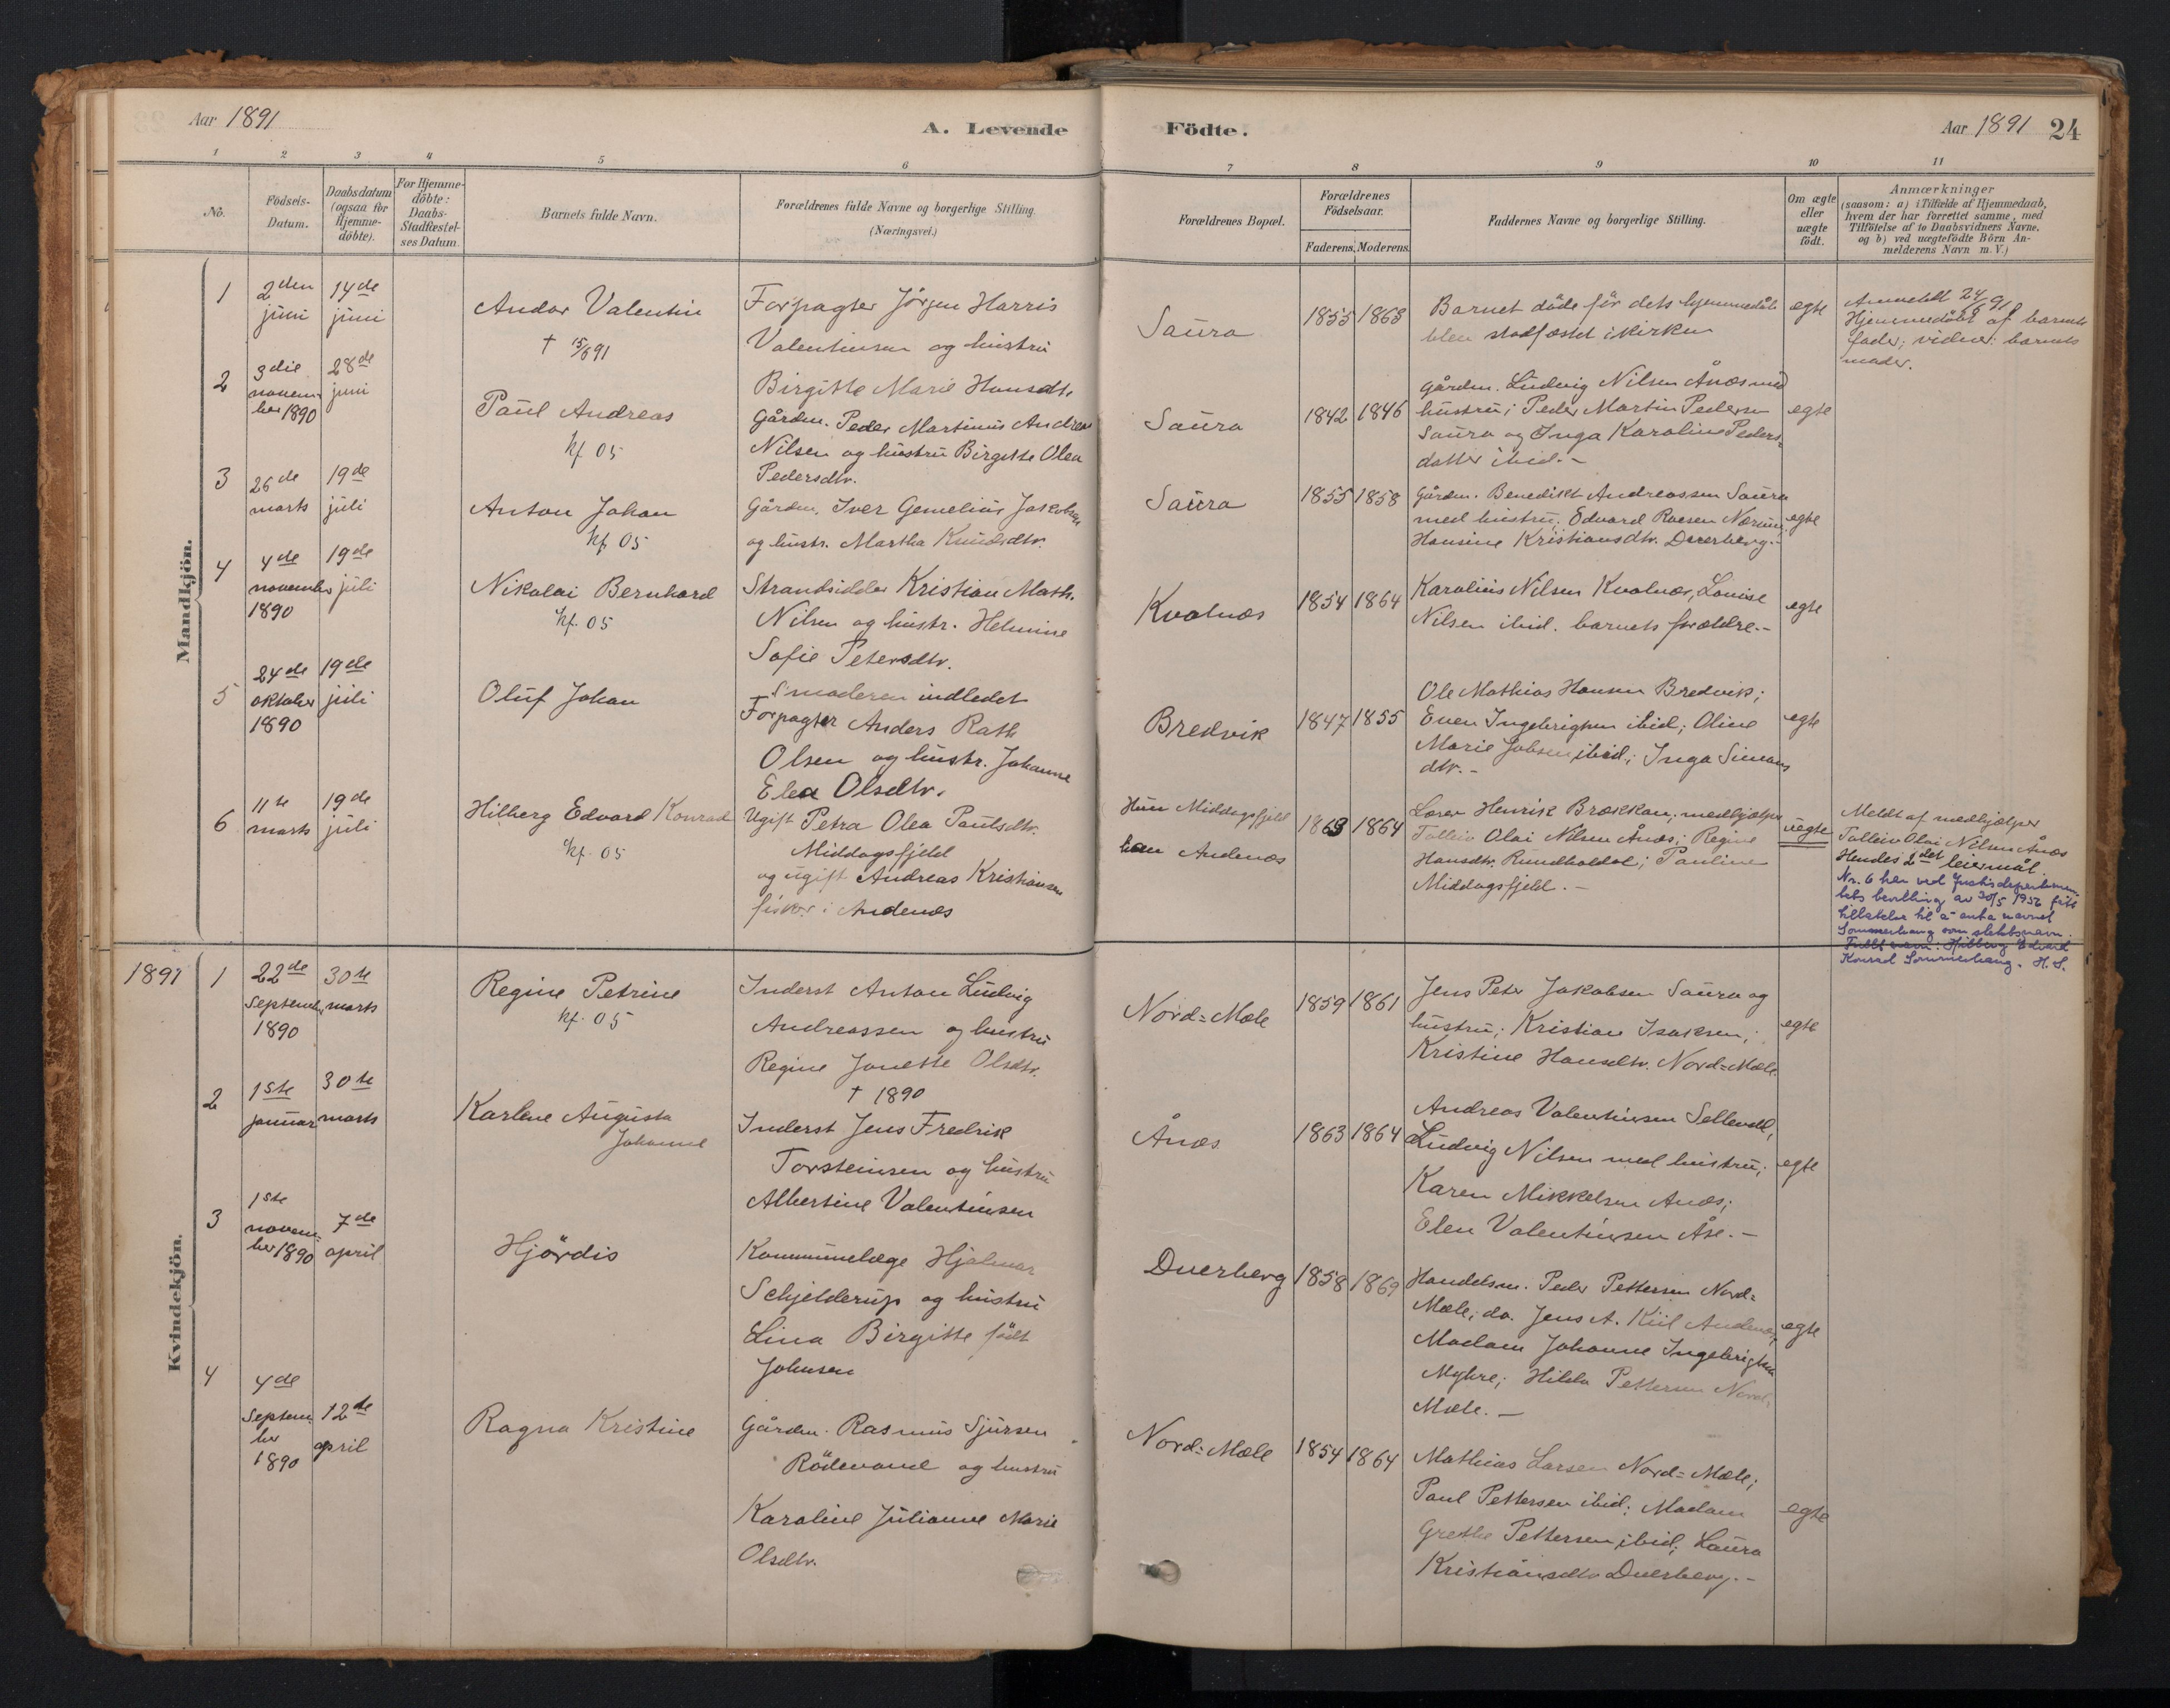 Aar 1891
A. Levende
Födte.
Aar 1891 24
1 2 3 4 5 6 7 8 9 10 11
No.
Födsels-
Datum.
Daabsdatum
(ogsaa for
Hjemme-
döbte).
For Hjemme-
döbte:
Daabs-
Stadfæstel-
ses Datum.
Barnets fulde Navn.
Forældrenes fulde Navne og borgerlige Stilling.
(Næringsvei.)
Forældrenes Bopæl.
Forældrenes
Födselsaar.
Faderens. Moderens.
Faddernes Navne og borgerlige Stilling.
Om ægte
eller
uægte
födt.
Anmærkninger
(saasom: a) i Tilfælde af Hjemmedaab,
hvem der har forrettet samme, med
Tilföielse af to Daabsvidners Navne.
og b) ved uægtefödte Börn An-
melderens Navn m. V.)
Mandkjön.
1
2den
juni
14de
juni
Andor Valentin
† 15/6 91
Forpagter Jörgen Harris
Valentinsen og hustru
Birgitte Marie Hansdtr.
Saura
1855 1863
Barnet döde för dets hjemmedåb
blev stadfæstet i kirken
egte
Anmeldt 24/6 91
Hjemmedöbt af barnets
fader; vidner: barnets
moder.
2
3die
novem-
ber 1890
28de
juni
Paul Andreas
kf. 05
Gårdm. Peder Martinus Andreas
Nilsen og hustru Birgitte Olea
Pedersdtr.
Saura
1842 1846
Gårdm. Ludvig Nilsen Ånæs med
hustru; Peder Martin Pedersen
Saura og Inga Karoline Peders-
datter ibid.-
egte
3
26de
marts
19de
juli
Anton Johan
kf. 05
Gårdm. Iver Gemelius Jakobsen
og hustr. Martha Knudsdtr.
Saura
1855 1858
Gårdm. Benedikt Andreassen Saura
med hustru; Edvard Roesen Nærum;
Hansine Kristiansdtr. Dverberg.-
egte
4
4de
november
1890
19de
juli
Nikolai Bernhard
kf. 05
Strandsidder Kristian Math.
Nilsen og hustr. Helmine
Sofie Petersdtr.
Kvalnæs
1854 1864
Karolius Nilsen Kvalnæs, Louise
Nilsen ibid. barnets forældre.-
egte
5
24de
oktober
1890
19de
juli
Oluf Johan
moderen indledet
Forpagter Anders Rath
Olsen og hustr. Johanne
Elea Olsdtr.
Bredvik
1847 1855
Ole Mathias Hansen Bredvik;
Even Ingebrigtsen ibid; Oline
Marie Jobsen ibid; Inga Simons
dtr.-
egte
6
11te
marts
19de
juli
Hilberg Edvard Konrad
kf. 05
Ugift Petra Olea Paulsdtr.
Middagsfjeld
og ugift Andreas Kristiansen
fisker i Andenæs
Hun Middagsfjeld
han Andenæs
1863 1864
Lærer Henrik Brækkan; medhjælper
Tolleiv Olai Nilsen Ånæs; Regine
Hansdtr. Rundholdal; Pauline
Middagsfjeld.-
uegte
Meldt af medhjælper
Tolleiv Olai Nilsen Ånæs
Hendes 2det leiermål.
Nr. 6 har ved Justisdepartemen-
tets bevilling av 30/5 1956 fått
tillatelse til å anta navnet
Sommerhaug som slektsnavn.
Fullt navn: Hilberg Edvard
Konrad Sommerhaug. H. S.
Kvindekjön.
1891
1
22de
September
1890
30te
marts
Regine Petrine
kf. 05
Inderst Anton Ludvig
Andreassen og hustru
Regine Jonette Olsdtr.
† 1890
Nord-Mæle
1859 1861
Jens Peter Jakobsen Saura og
hustru; Kristian Isaksen;
Kristine Hansdtr. Nord-Mæle.
egte
2
1ste
januar
30te
marts
Karlene Augusta
Johanne
Inderst Jens Fredrik
Torsteinsen og hustru
Albertine Valentinsen
Ånæs
1863 1864
Andreas Valentinsen Sellevoll,
Ludvig Nilsen med hustru;
Karen Mikkelsen Anæs;
Elen Valentinsen Åse.-
egte
3
1ste
novem-
ber 1890
7de
april
Hjördis
Kommunelæge Hjalmar
Schjelderup og hustru
Lina Birgitte födt
Johnsen
Dverberg
1858 1869
Handelsm. Peder Pettersen Nord-
Mæle; do. Jens A. Kiil Andenæs,
Madam Johanne Ingebrigtsen
Myhre; Hilda Pettersen Nord-
Mæle.-
egte
4
4de
Septem
ber
1890
12te
april
Ragna Kristine
Gårdm. Rasmus Sjursen
Rödevand og hustru
Karoline Julianne Marie
Olsdtr.
Nord-Mæle
1854 1864
Mathias Larsen Nord-Mæle;
Paul Pettersen ibid; Madam
Grethe Pettersen ibid; Laura
Kristiansdtr. Dverberg.-
egte